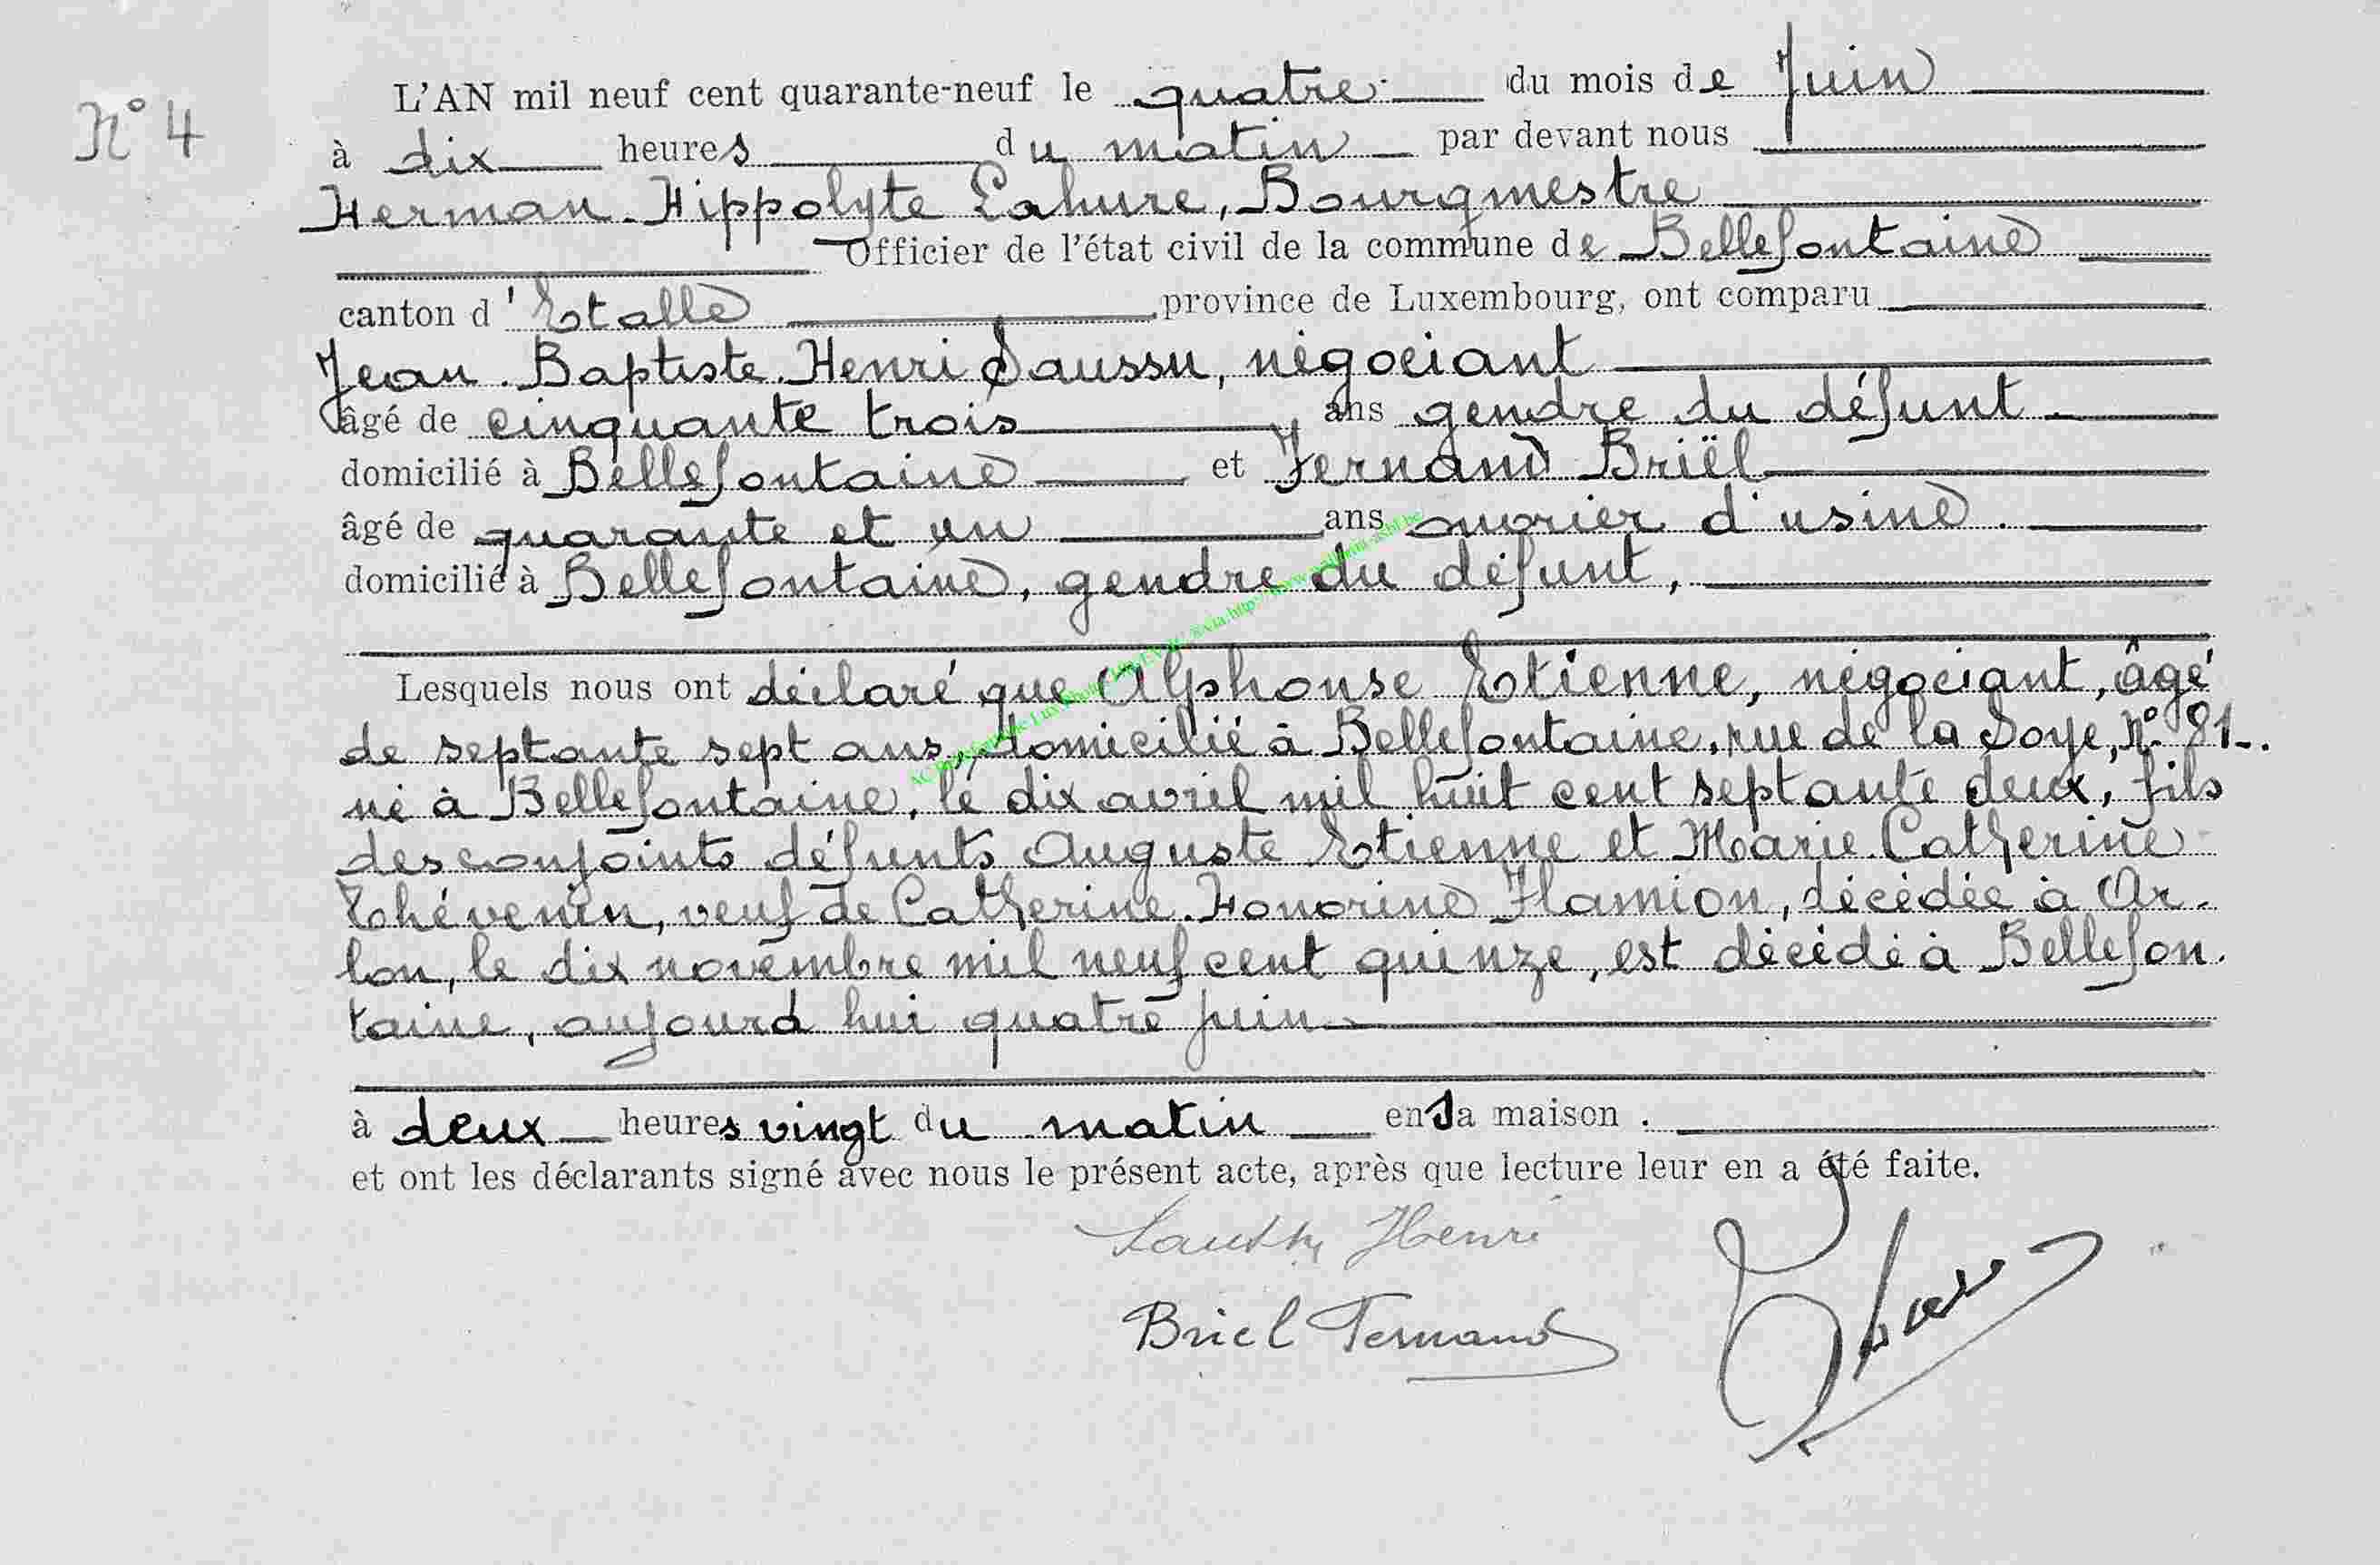 N° 4
L'AN mil neuf cent quarante-neuf le quatre du mois de Juin
à dix heures du matin par devant nous
Herman-Hippolyte Lahure, Bourgmestre
Officier de l'état civil de la commune de Bellefontaine
canton d'Etalle province de Luxembourg, ont comparu
Jean-Baptiste-Henri Saussu, négociant
âgé de cinquante trois ans gendre du défunt
domicilié à Bellefontaine et Fernand Briël
âgé de quarante et un ans ouvrier d'usine.
domicilié à Bellefontaine, gendre du défunt,
Lesquels nous ont déclaré que Alphonse Etienne, négociant, âgé
de septante sept ans, domicilié à Bellefontaine, rue de la Soye, N° 81.
né à Bellefontaine, le dix avril mil huit cent septante deux, fils
des conjoints défunts Auguste Etienne et Marie-Catherine
Thévenin, veuf de Catherine-Honorine Flamion, décédée à Ar-
lon, le dix novembre mil neuf cent quinze, est décédé à Bellefon-
taine, aujourd'hui quatre juin
à deux heures vingt du matin en sa maison.
et ont les déclarants signé avec nous le présent acte, après que lecture leur en a été faite.
Saussu Henri
Briel Fernand